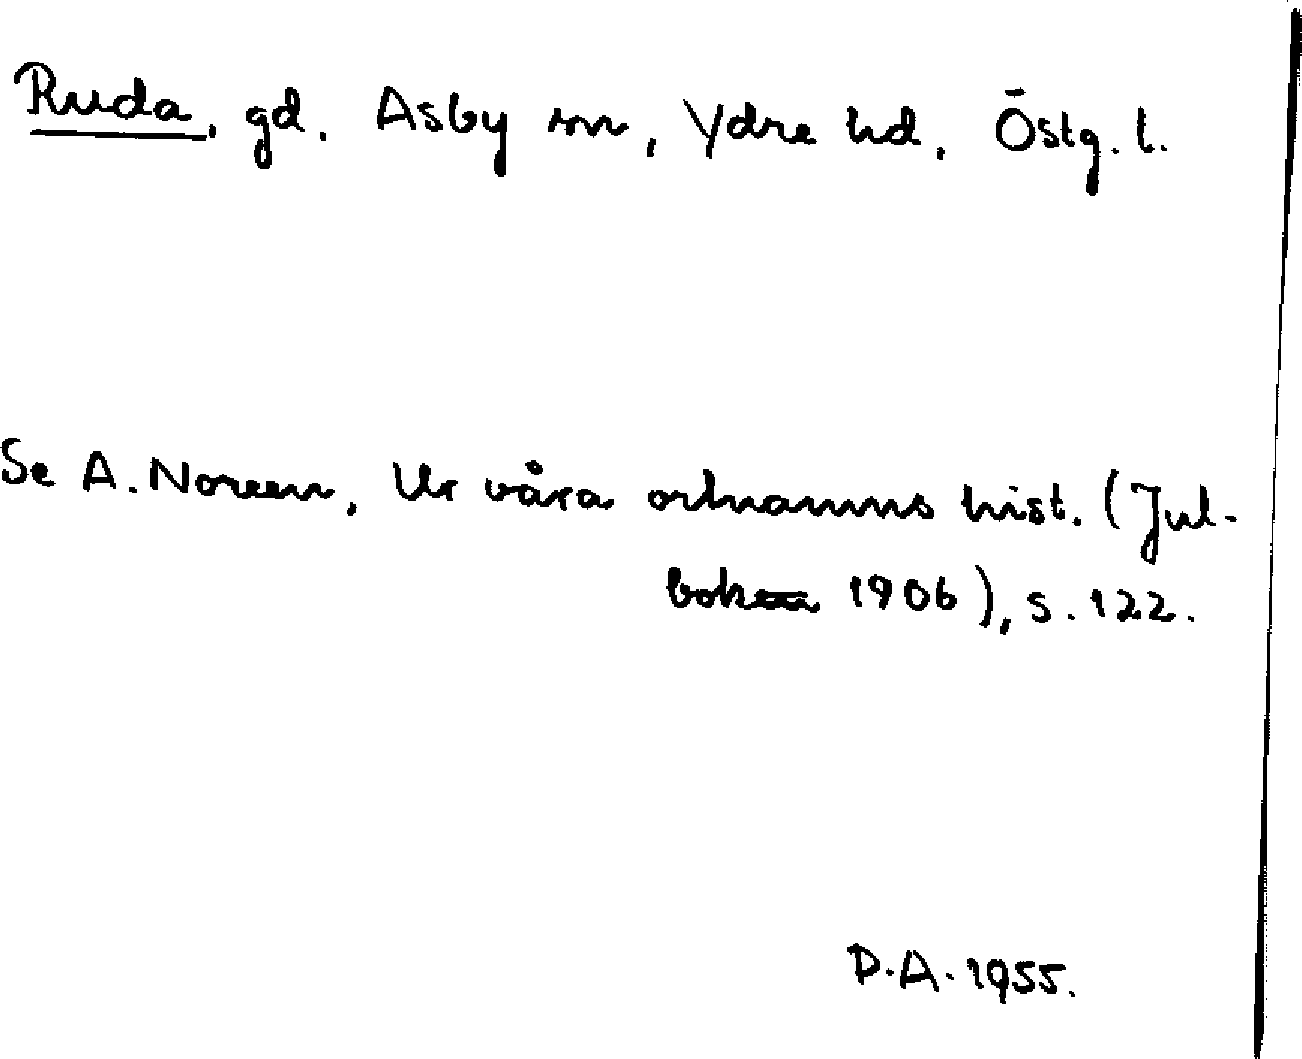 Ruda, gd. Asby sn, Ydre hd, Östg. l.
Se A. Noreen, Ur våra ortnamns hist. (Jul-
boken 1906), s. 122.
D.A. 1955.